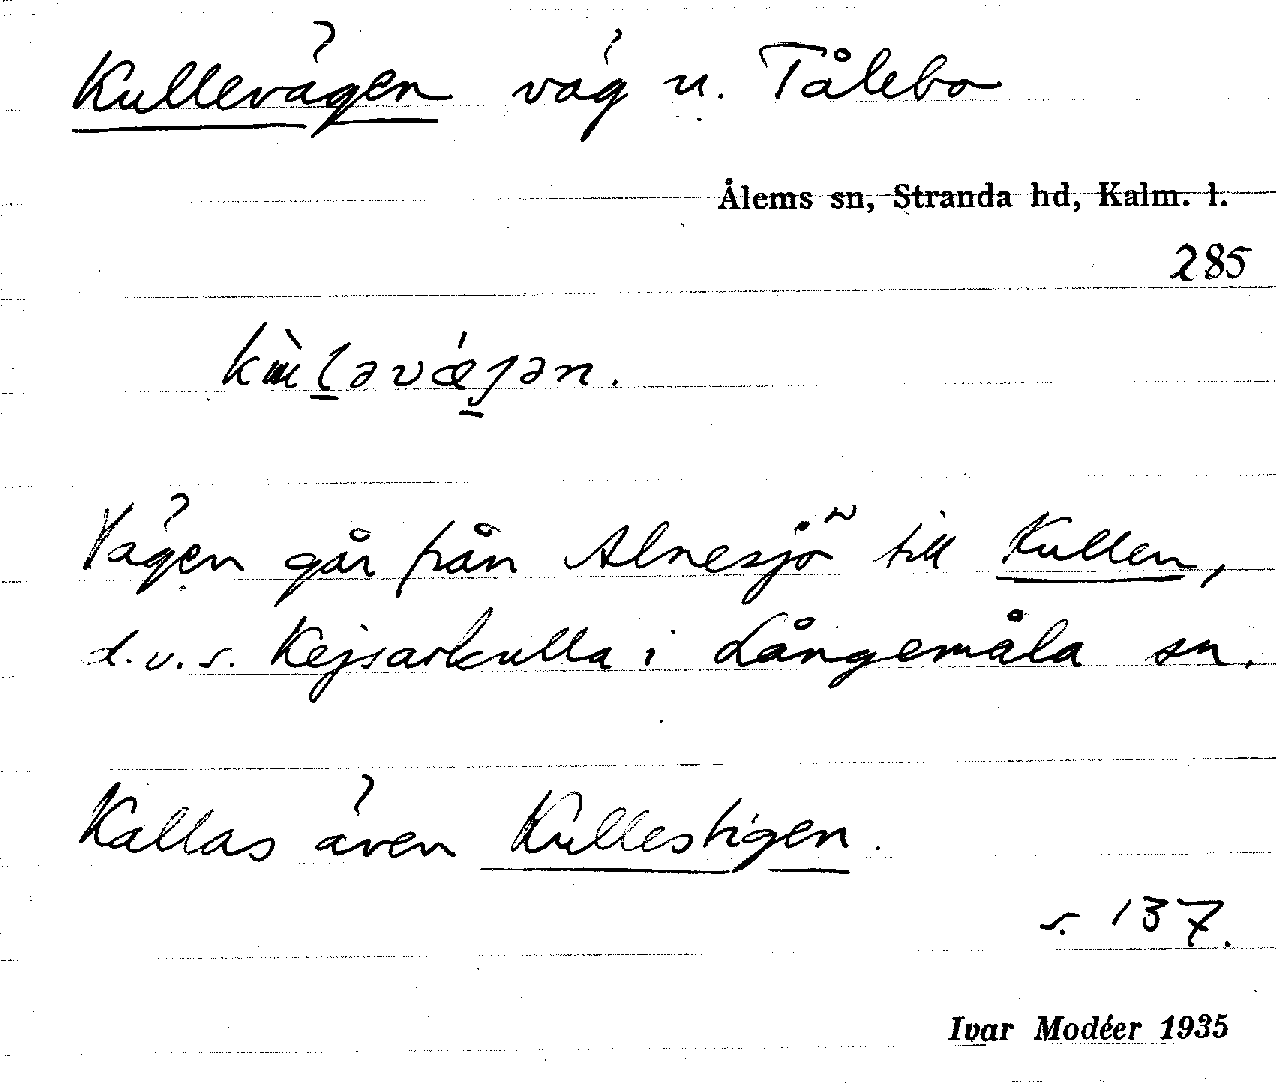 Kullevägen väg u. Tålebo
Ålems sn, Stranda hd, Kalm. l.
285
Vägen går från Alnesjö till Kullen,
d.v.s. Kejsarkulla i Långemåla sn.
Kallas även Kullestigen.
s. 137.
Ivar Modéer 1935